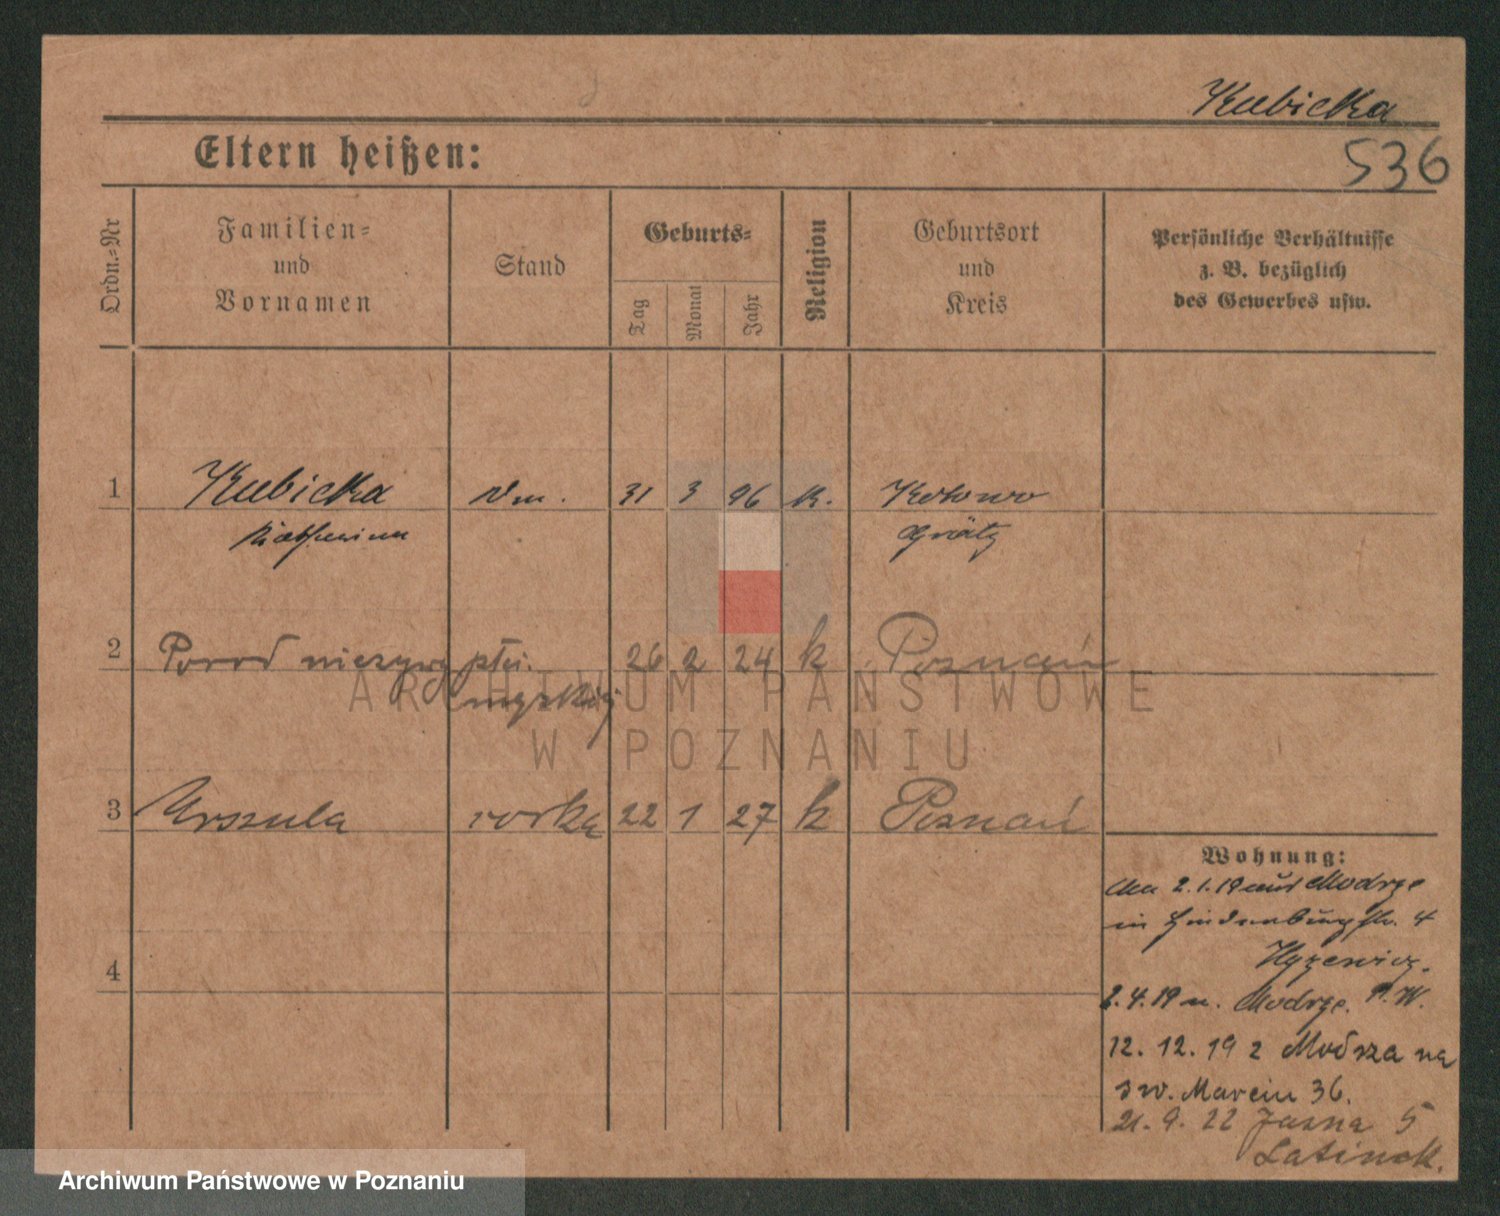 Kubicka
Eltern heißen:
536
Ordn.-Nr
Familien-
und
Vornamen
Stand
Geburts-
Tag
Monat
Jahr
Religion
Geburtsort
und
Kreis
Persönliche Verhältnisse
z. B. bezüglich
des Gewerbes usw.
1 Kubicka 31 3 96 k. Kotowo
Katharina Grätz
2 Porod nieżywy płci. 26 2 24 k Poznań
męskiej
3 Urszula córka 22 1 27 k Poznań
4
Wohnung:
2.1.19 aus Modrze
in Hindenburgstr. 4
2.4.19 n. Modrze.
12. 12. 19 z Modrza na
św. Marcin 36.
21. 9. 22 Jasna 5
ARCHIWUM PAŃSTWOWE
W POZNANIU
Archiwum Państwowe w Poznaniu